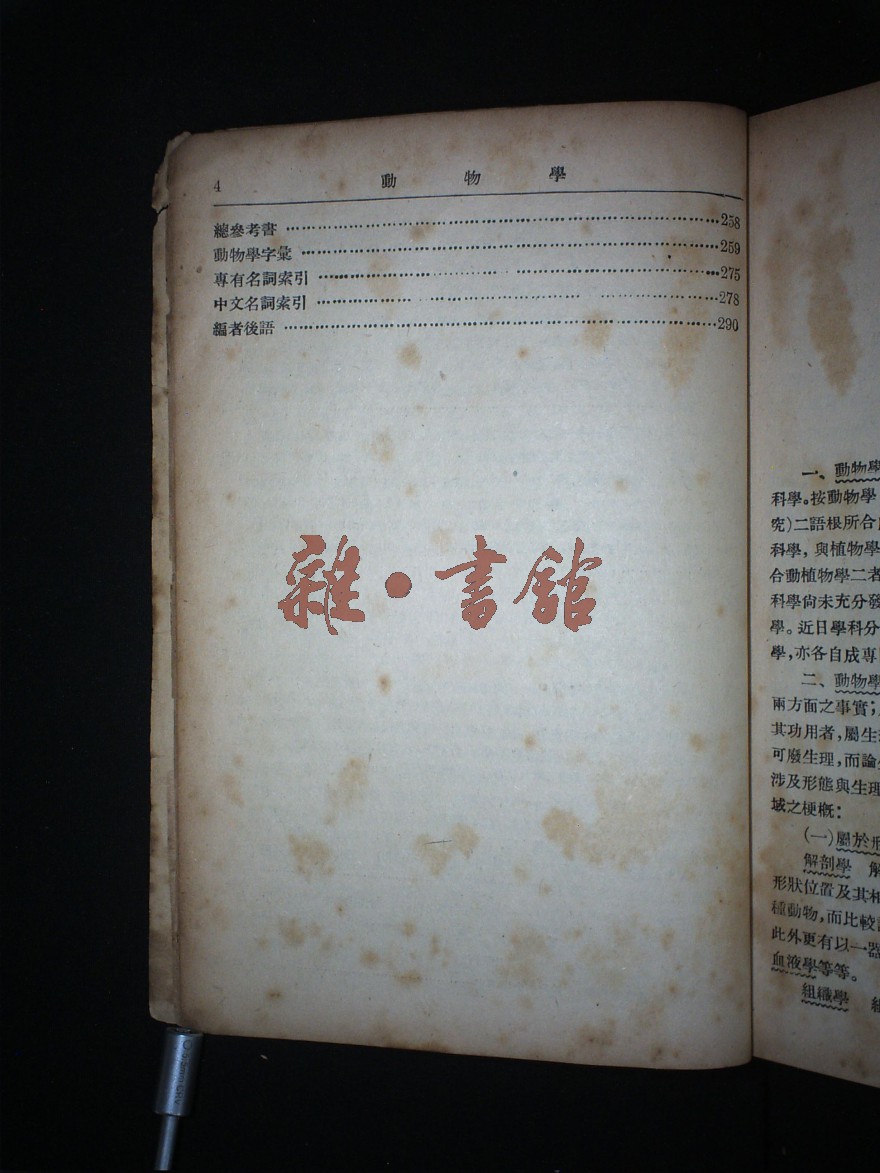 4 動物學
總參考書 258
動物學字彙 259
專有名詞索引 275
中文名詞索引 278
編者後語 290
雜·書館
一、動物學
科學。按動物學
究)二語根所合
科學,與植物學
合動植物學二者
科學尙未充分發
學。近日學科分
學,亦各自成專
二、動物學
兩方面之事實;
其功用者,屬生
可廢生理,而論
涉及形態與生理
域之梗槪:
(一)屬於形
解剖學 解
形狀位置及其相
種動物,而比較
此外更有以一器
血液學等等。
組織學